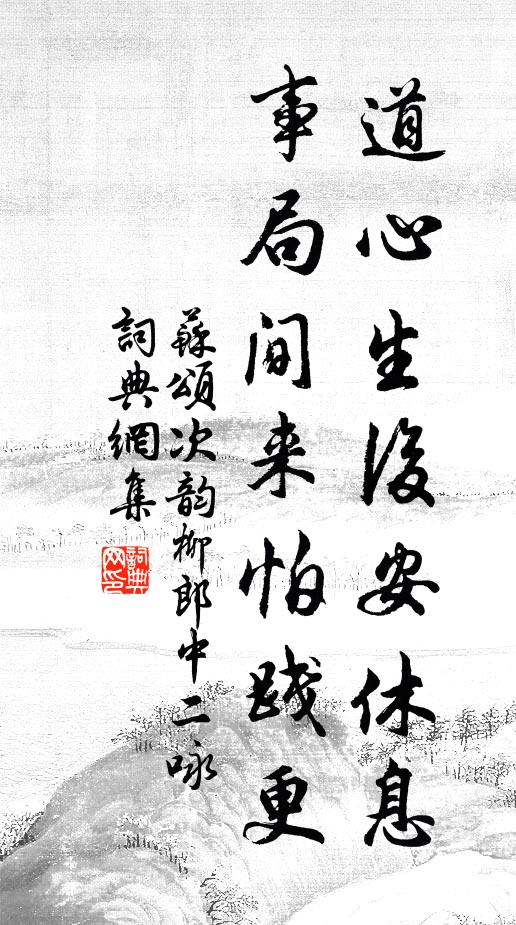 道心生後安休息
事局閒来怕踐更
蘇頌次韵柳郎中二咏
詞典網集
詞典网印